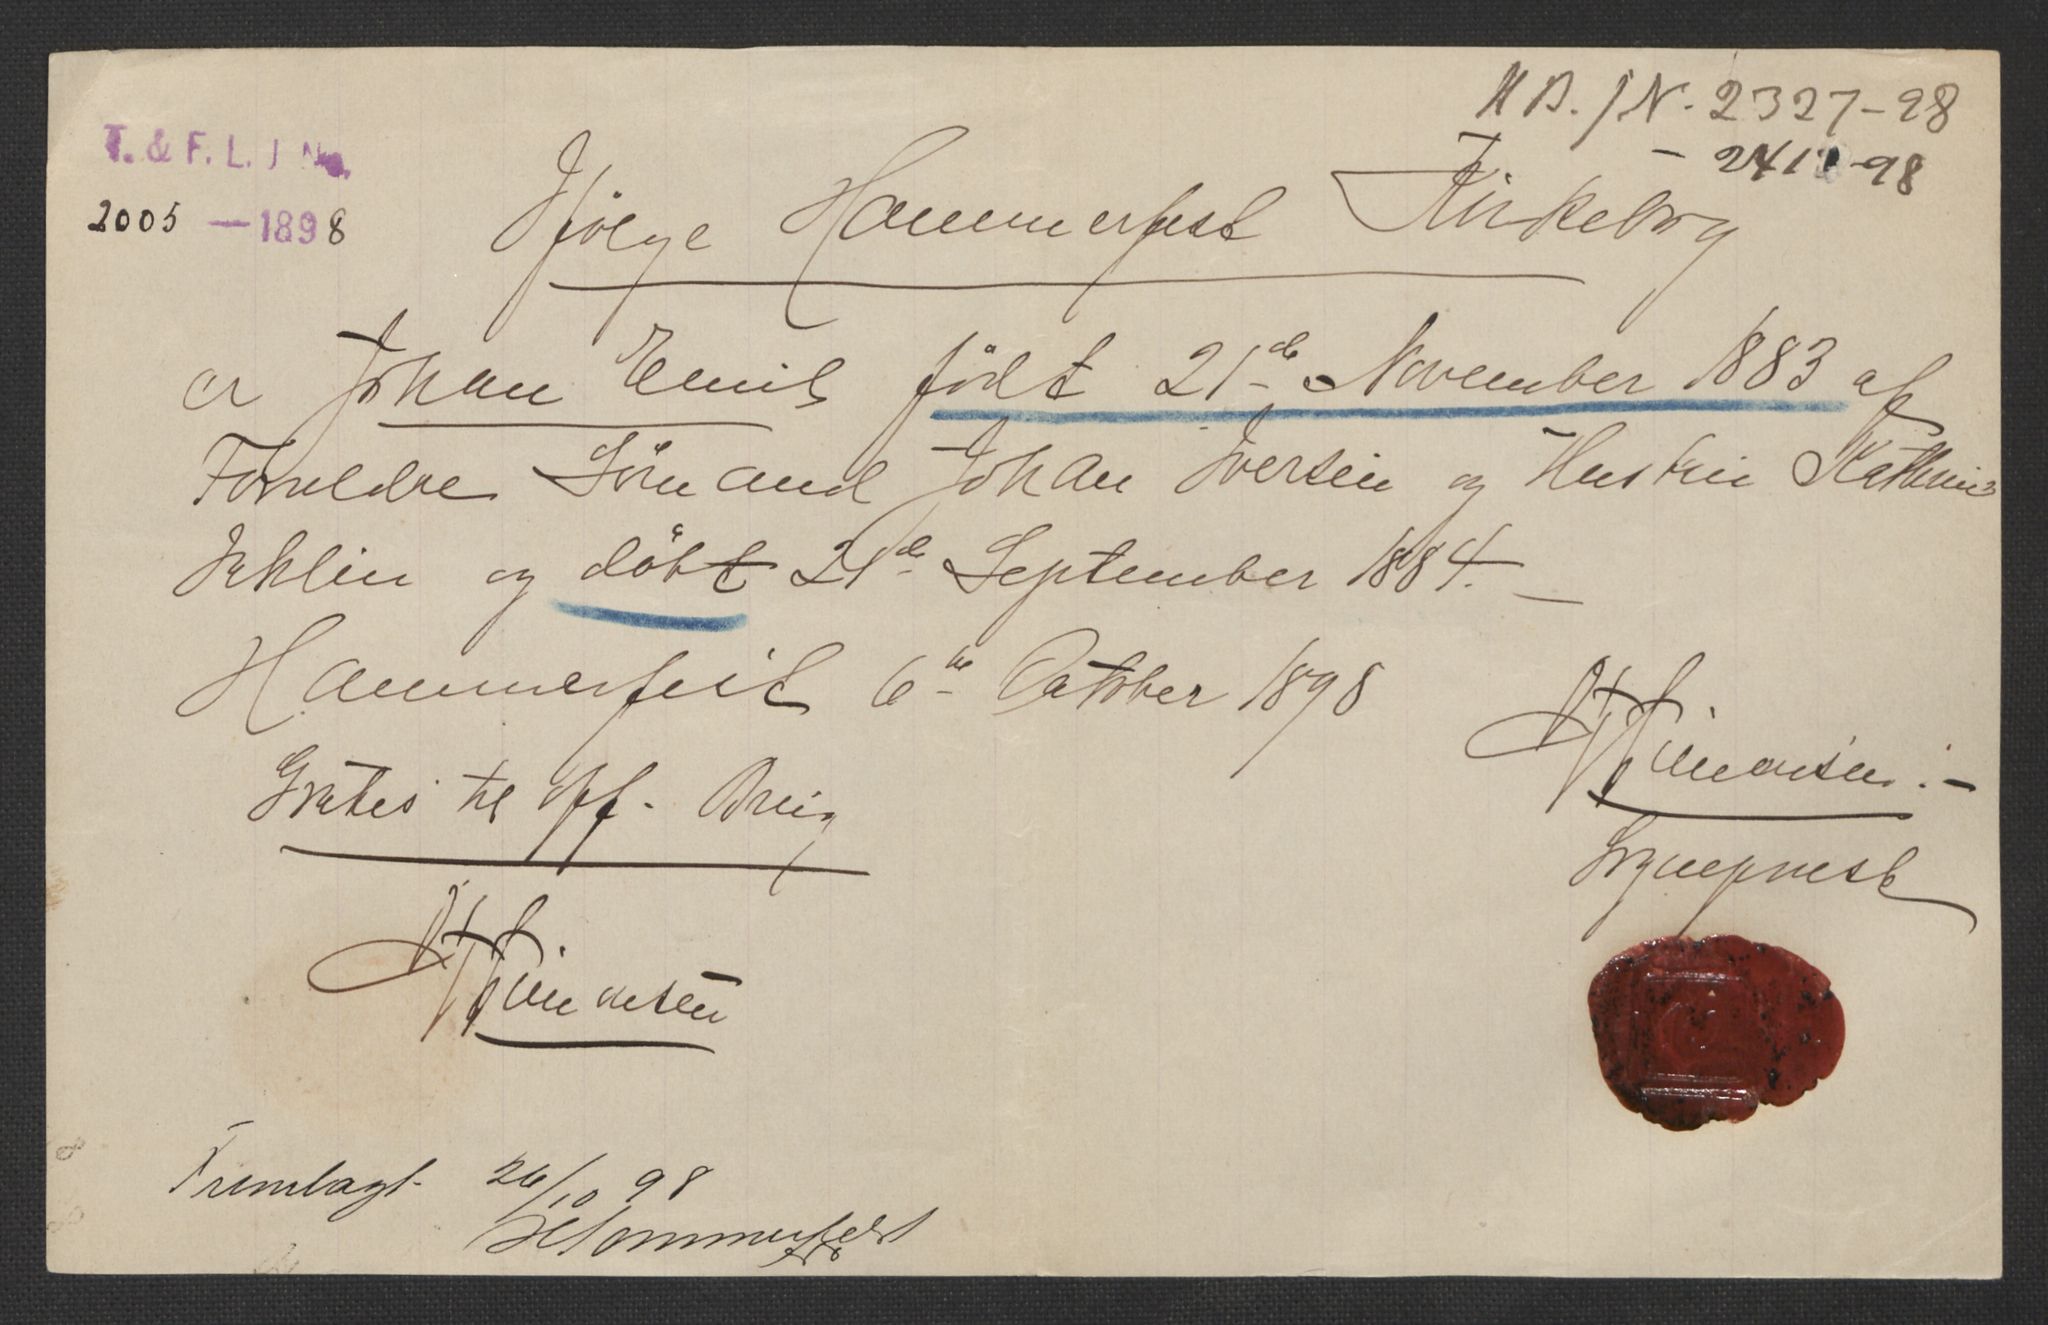 T. & F. L. J No.
2005 — 1898
H B. J N. 2327-98
- 2412-98
Ifølge Hammerfest Kirkebog
er Johan Emil født 21de November 1883 af
Forældre Sømand Johan Iversen og Hustru Kathrine
og døbt 21de September 1884. —
Hammerfest 6te Oktober 1898
Gratis til off. Brug
Sogneprest
Fremlagt 26/10 98
HSommerfeldt